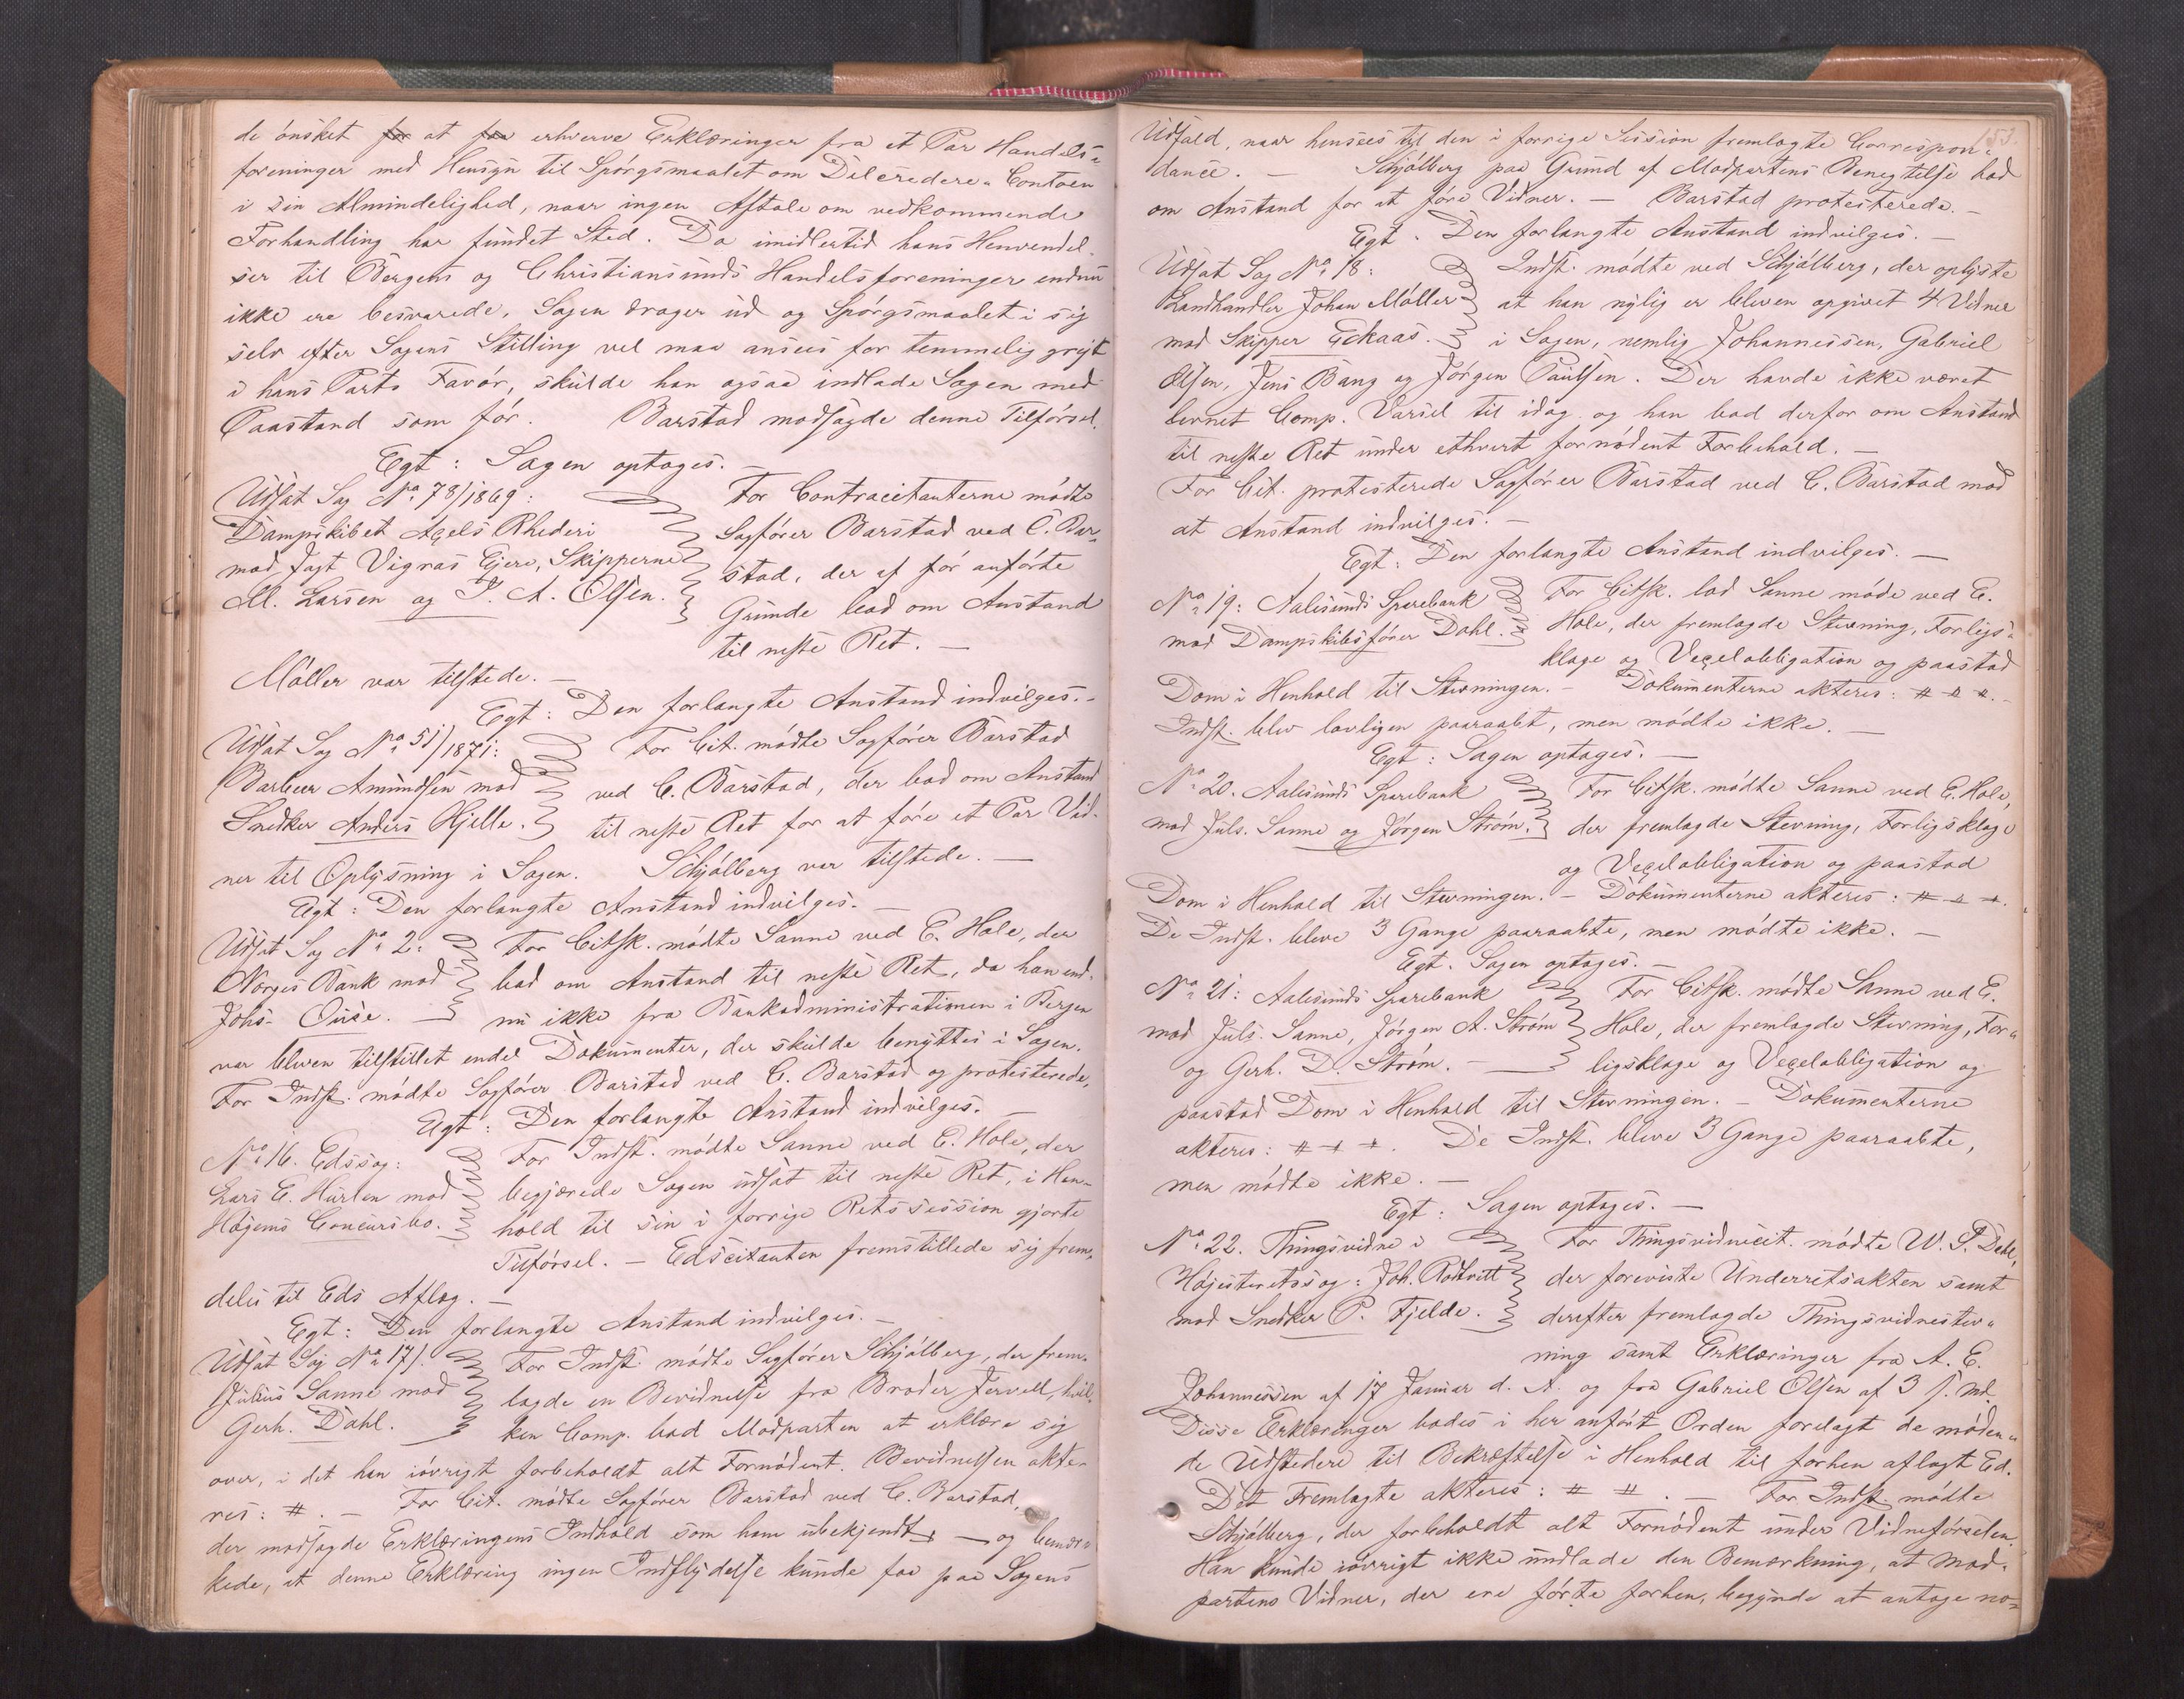 de ønsket for at faa erhverve Erklæringer fra et Par Handels-
foreninger med Hensyn til Spørgsmaalet om Delcredere-Contoen
i sin Almindelighed, naar ingen Aftale om vedkommende
Forhandling har fundet Sted. Da imidlertid hans Henvendel-
ser til Bergens og Christiansunds Handelsforeninger endnu
ikke ere besvarede, Sagen drager ud og Spørgsmaalet i sig
selv efter Sagens Stilling vel maa ansees for temmelig grejt
i hans Parts Favør, skulde han ogsaa indlade Sagen med
Paastand som før. Barstad modsagde denne Tilførsel.
Egt: Sagen optages. —
Udsat Sag No 78/1869: For Contracitanterne mødte
Dampskibet Axels Rhederi Sagfører Barstad ved C. Bar-
mod Jagt Vigras Ejere, Skipperne stad, der af før anførte
M. Larsen og P. A. Olsen. Grunde bad om Anstand
til neste Ret. —
Møller var tilstede. —
Egt: Den forlangte Anstand indvilges. —
Udsat Sag No 51/1871: For Cit. mødte Sagfører Barstad
Barbeer Amundsen mod ved C. Barstad, der bad om Anstand
Snedker Anders Hjelle. til neste Ret for at føre et Par Vid-
ner til Oplysning i Sagen. Schjølberg var tilstede. —
Egt: Den forlangte Anstand indvilges. —
Udsat Sag No 2: For Citsk. mødte Sanne ved E. Hole, der
Norges Bank mod bad om Anstand til neste Ret, da han end-
Johs. Ouse. — nu ikke fra Bankadministrationen i Bergen
var bleven tilstillet endel Dokumenter, der skulde benyttes i Sagen.
For Indst. mødte Sagfører Barstad ved C. Barstad og protesterede.
Egt: Den forlangte Anstand indvilges. —
No 16. Edssag: For Indst. mødte Sanne ved E. Hole, der
Lars E. Hurlen mod begjærede Sagen udsat til neste Ret, i Hen-
Højems Concursbo. hold til sin i forrige Retssession gjorte
Tilførsel. — Edscitanten fremstillede sig frem-
deles til Eds Aflæg. —
Egt: Den forlangte Anstand indvilges. —
Udsat Sag No 17. For Indst. mødte Sagfører Schjølberg, der frem-
Julius Sanne mod lagde en Bevidnelse fra Broder Jervell, hvil-
Gerh. Dahl. ken Comp. bad Modparten at erklære sig
over, i det han iøvrigt forbeholdt alt Fornødent. Bevidnelsen akte-
res: #. — For Cit. mødte Sagfører Barstad ved C. Barstad,
der modsagde Erklæringens Indhold som ham ubekjendt — og bemær-
kede, at denne Erklæring ingen Indflydelse kunde faa paa Sagens
153.
Udfald, naar hensees til den i forrige Session fremlagte Correspon-
dance. — Schjølberg paa Grund af Modpartens Benegtelse bad
om Anstand for at føre Vidner. — Barstad protesterede. —
Egt. Den forlangte Anstand indvilges. —
Udsat Sag No 18: Indst. mødte ved Schjølberg, der oplyste
Landhandler Johan Møller at han nylig er bleven opgivet 4 Vidner
mod Skipper Eckaas. i Sagen, nemlig Johannessen, Gabriel
Olsen, Jens Bang og Jørgen Paulsen. Der havde ikke været
levnet Comp. Varsel til idag og han bad derfor om Anstand
til neste Ret under ethvert fornødent Forbehold. —
For Cit. protesterede Sagfører Barstad ved C. Barstad mod
at Anstand indvilges. —
Egt: Den forlangte Anstand indvilges. —
No 19: Aalesunds Sparebank For Citsk. lod Sanne møde ved E.
mod Dampskibsfører Dahl. Hole, der fremlagde Stevning, Forligs-
klage og Vexelobligation og paastod
Dom i Henhold til Stevningen. — Dokumenterne akteres: # # #. —
Indst. blev lovligen paaraabt, men mødte ikke. —
Egt: Sagen optages. —
No 20. Aalesunds Sparebank For Citsk. mødte Sanne ved E. Hole,
mod Juls. Sanne og Jørgen Strøm. der fremlagde Stevning, Forligsklage
og Vexelobligation og paastod
Dom i Henhold til Stevningen. — Dokumenterne akteres: # # #.
De Indst. bleve 3 Gange paaraabte, men mødte ikke. —
Egt. Sagen optages. —
No 21: Aalesunds Sparebank For Citsk. mødte Sanne ved E.
mod Juls. Sanne, Jørgen A. Strøm Hole, der fremlagde Stevning, For-
og Gerh. D. Strøm. — ligsklage og Vexelobligation og
paastod Dom i Henhold til Stevningen. — Dokumenterne
akteres: # # #. De Indst. bleve 3 Gange paaraabte,
men mødte ikke. —
Egt: Sagen optages. —
No 22. Thingsvidne i For Thingsvidnecit. mødte W. S. Dahl,
Højesteretssag: Joh. Rødtvitt der foreviste Underretsakten samt
mod Snedker P. Fjelde. derefter fremlagde Thingsvidnestev-
ning samt Erklæringer fra A. E.
Johannessen af 17 Januar d. A. og fra Gabriel Olsen af 3 f. Md.
Disse Erklæringer bades i her anført Orden forelagt de møden-
de Udstedere til Bekræftelse i Henhold til forhen aflagt Ed.
Det Fremlagte akteres: # #. — For Indst. mødte
Schjølberg, der forbeholdt alt Fornødent under Vidneførselen.
Han kunde iøvrigt ikke undlade den Bemærkning, at Mod-
partens Vidner, der ere førte forhen, begynde at antage no-